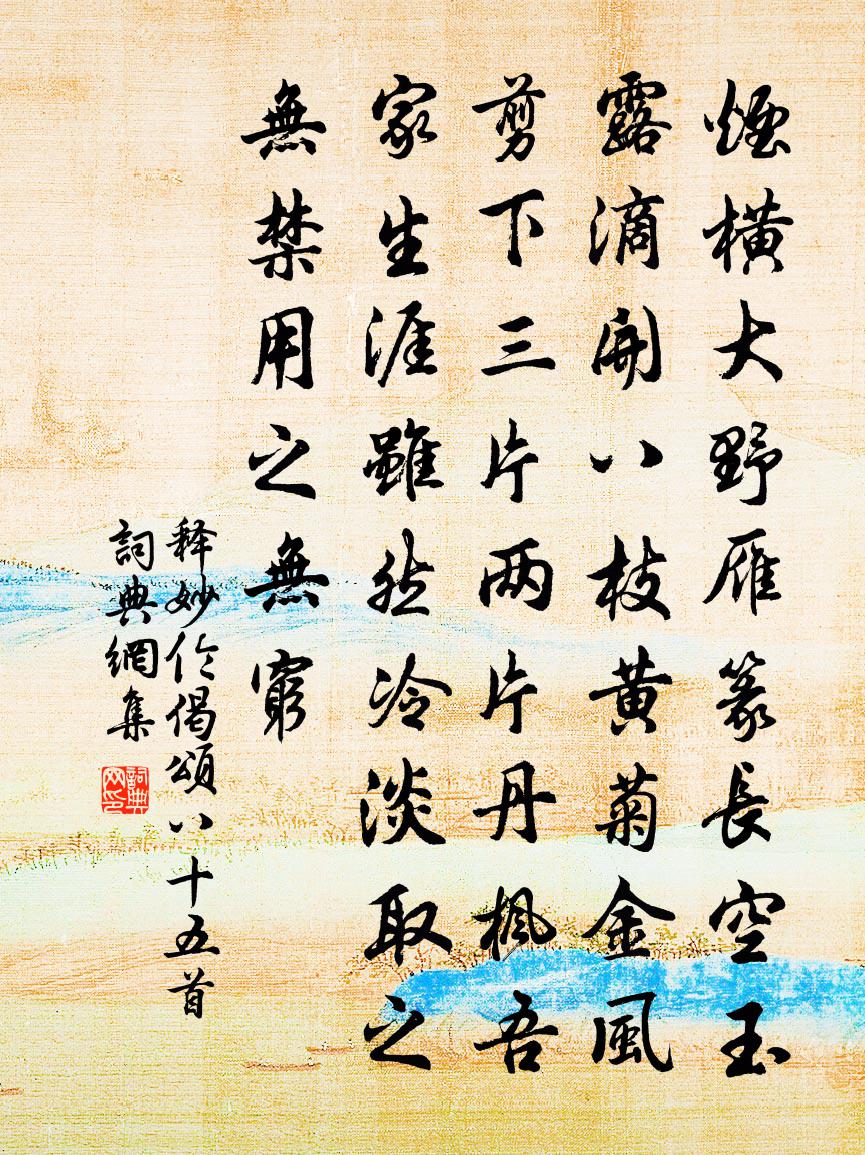 煙橫大野雁篆長空玉
露滴開八枝黃菊金風
剪下三片两片丹楓吾
家生涯雖然冷淡取之
無禁用之無窮
释妙伦偈頌八十五首
詞典網集
詞典网印